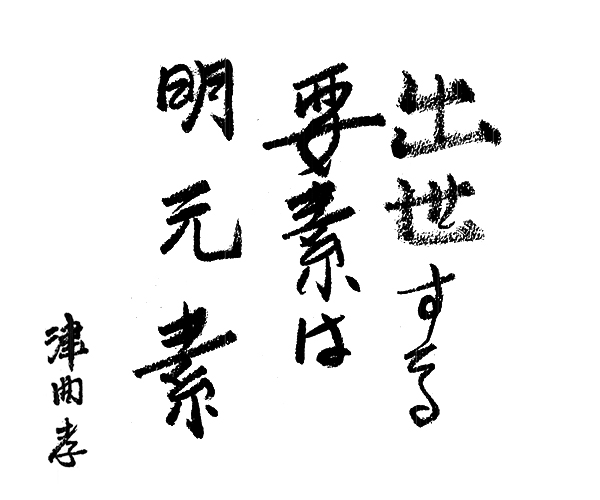 出世する
要素は
明元素
津曲孝